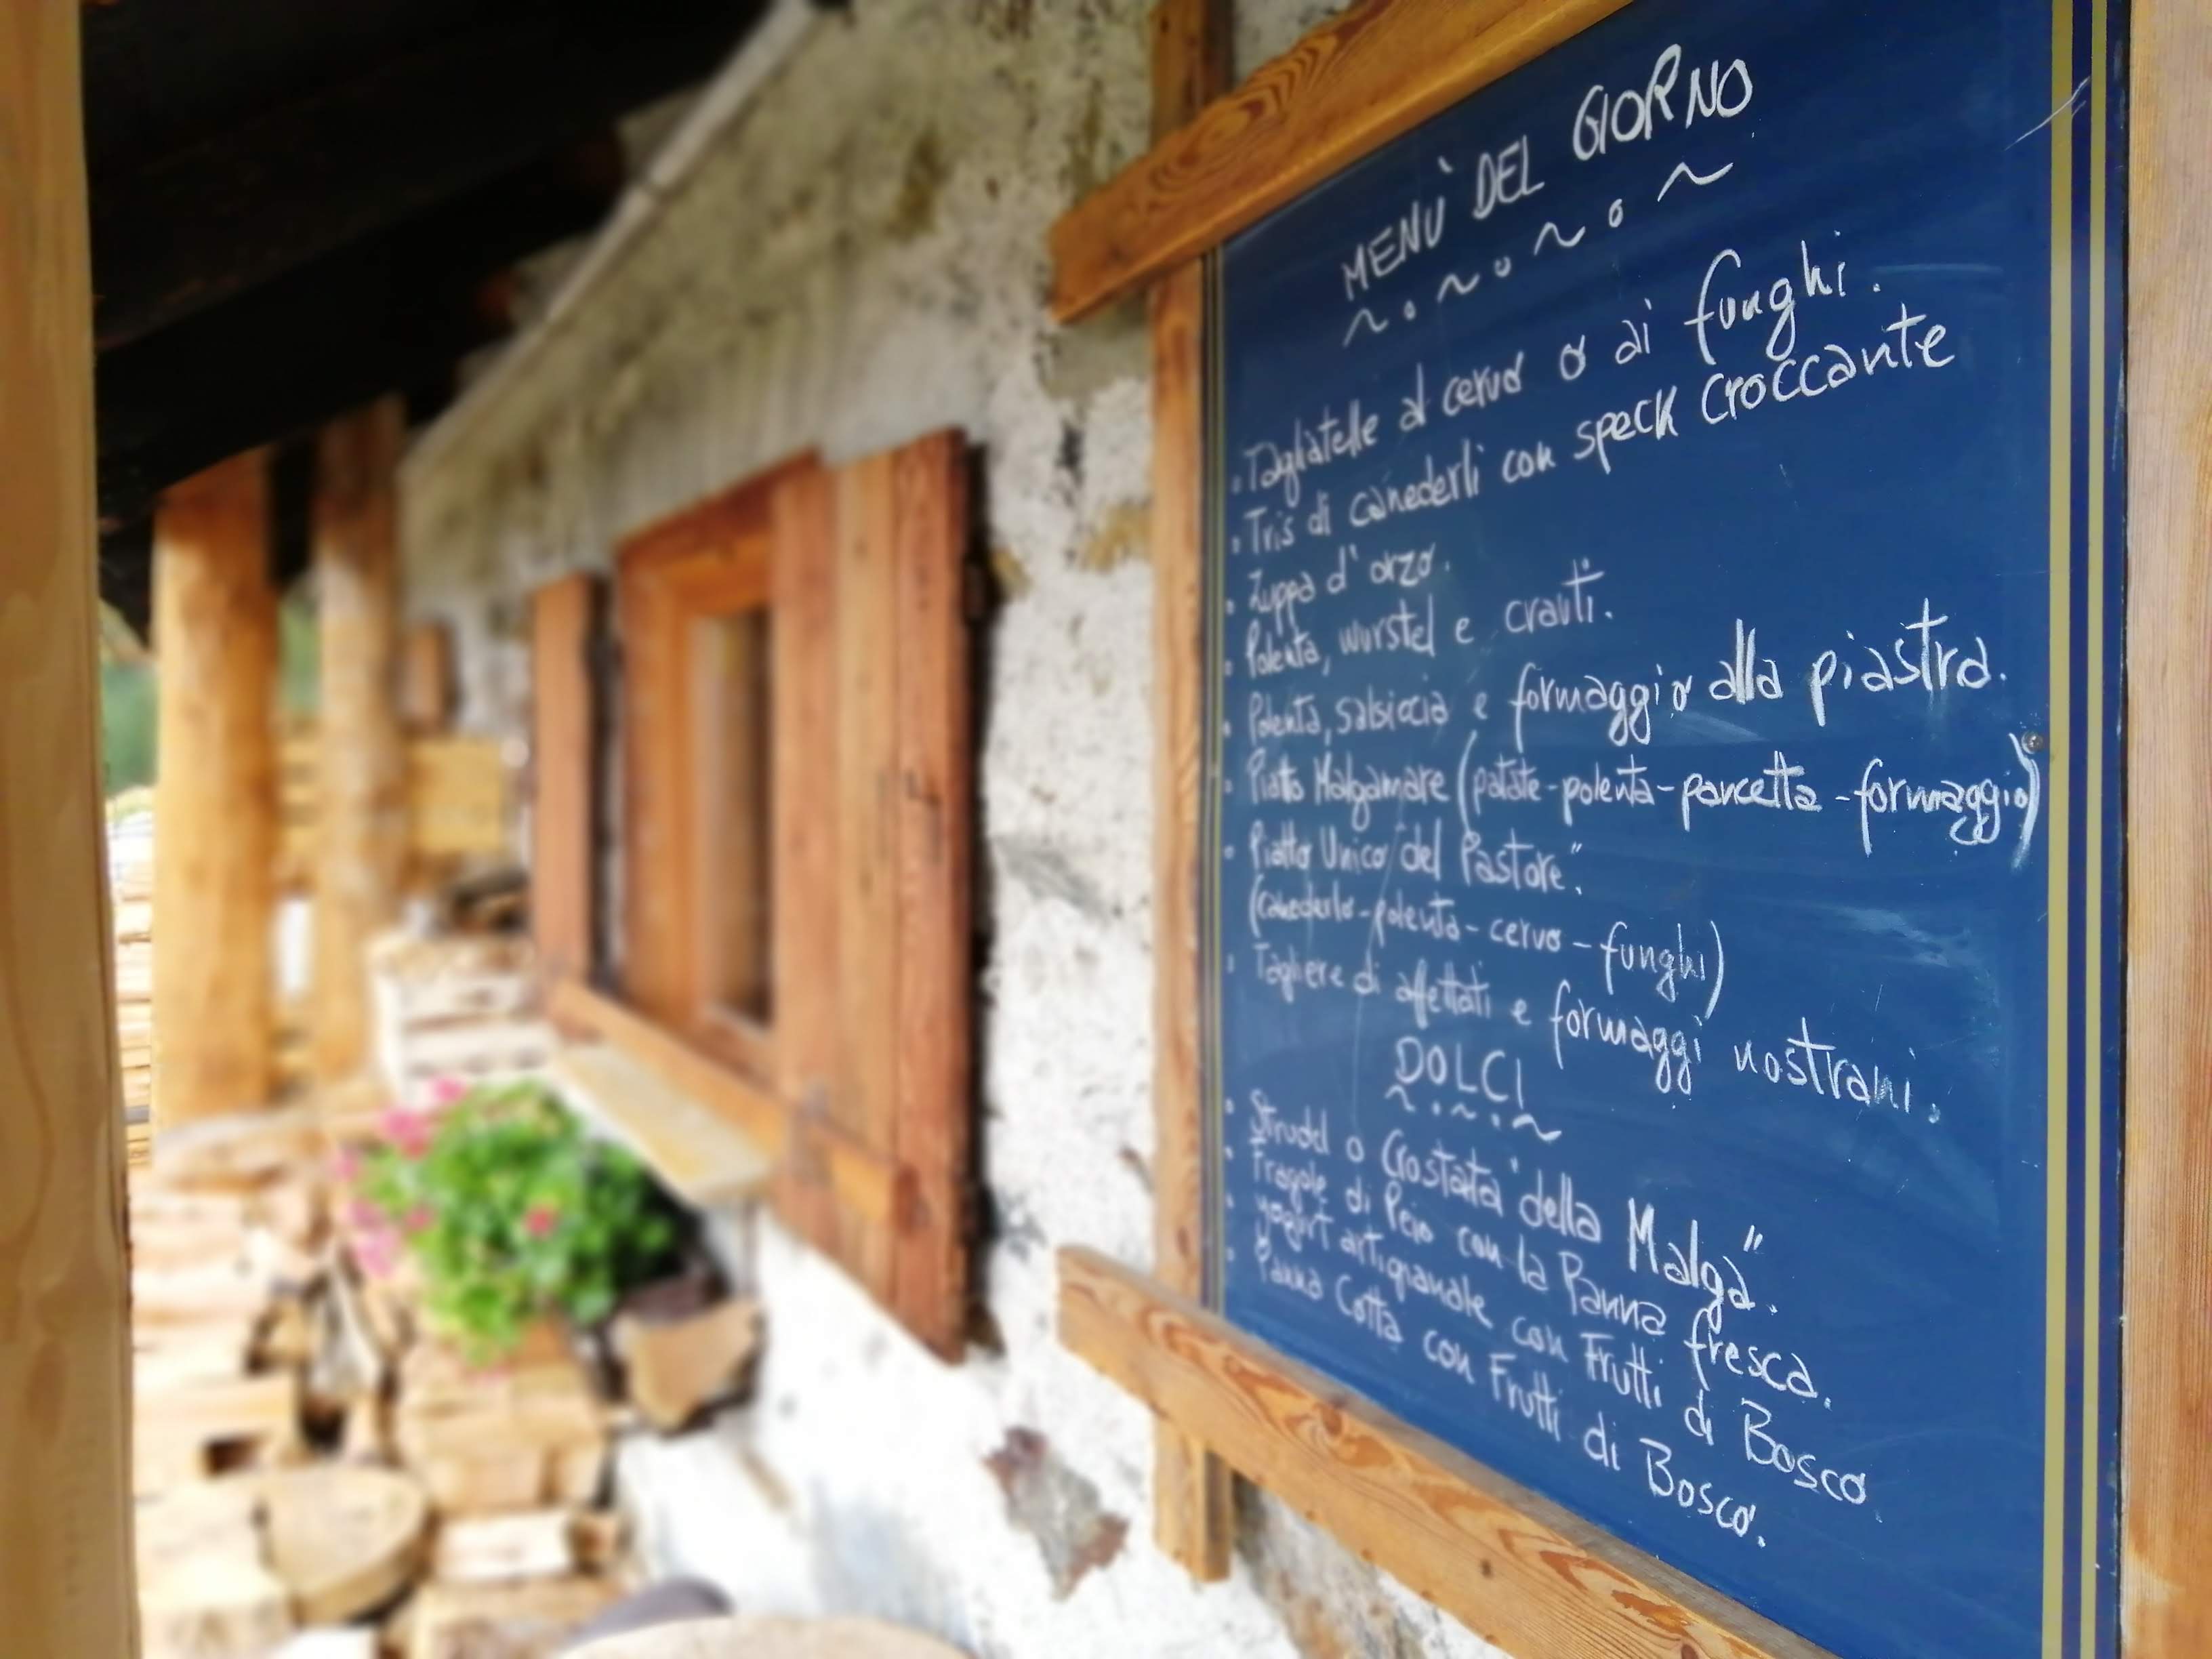 MENÙ DEL GIORNO
~ o ~ o ~ o ~
• Tagliatelle al cervo o ai funghi.
• Tris di canederli con speck croccante
• Zuppa d'orzo.
• Polenta, wurstel e crauti.
• Polenta, salsiccia e formaggio alla piastra.
• Piatto Malgamare (patate-polenta-pancetta-formaggio)
• Piatto Unico "del Pastore".
(canederlo-polenta-cervo-funghi)
• Tagliere di affettati e formaggi nostrani.
DOLCI
~ . ~ . ~
• Strudel o Crostata "della Malga".
• Fragole di Peio con la Panna fresca.
• yogurt artigianale con Frutti di Bosco
• Panna Cotta con Frutti di Bosco.